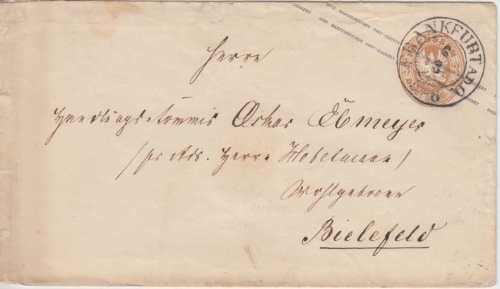 FRANKFURT A.D.O.
Herrn
Handlungs-Commis Oskar
/pr. Ads. Herrn Hobelmann/
Wohlgeboren
Bielefeld